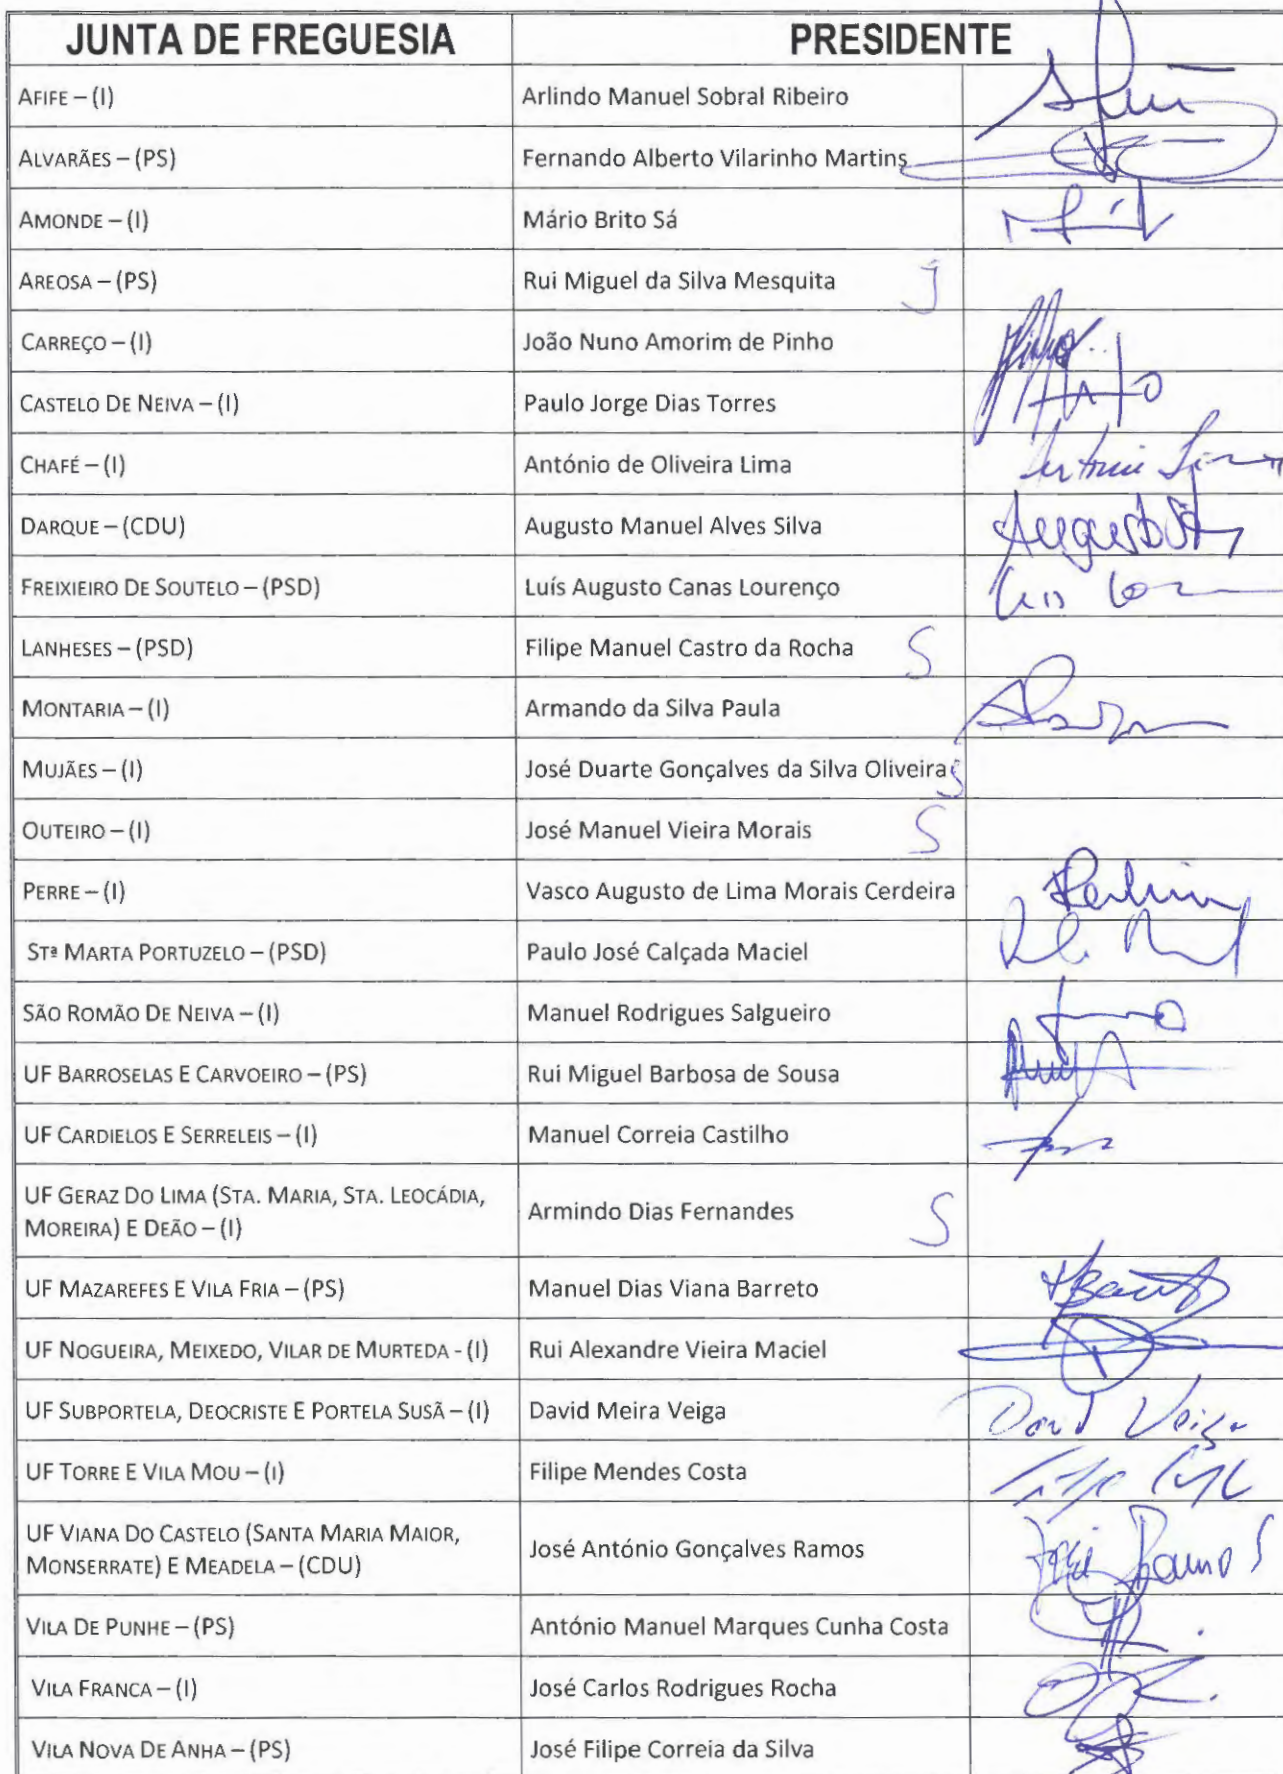 JUNTA DE FREGUESIA PRESIDENTE
AFIFE – (I) Arlindo Manuel Sobral Ribeiro
ALVARÃES – (PS) Fernando Alberto Vilarinho Martins
AMONDE – (I) Mário Brito Sá
AREOSA – (PS) Rui Miguel da Silva Mesquita J
CARREÇO – (I) João Nuno Amorim de Pinho
CASTELO DE NEIVA – (I) Paulo Jorge Dias Torres
CHAFÉ – (I) António de Oliveira Lima
DARQUE – (CDU) Augusto Manuel Alves Silva
FREIXIEIRO DE SOUTELO – (PSD) Luís Augusto Canas Lourenço
LANHESES – (PSD) Filipe Manuel Castro da Rocha S
MONTARIA – (I) Armando da Silva Paula
MUJÃES – (I) José Duarte Gonçalves da Silva Oliveira S
OUTEIRO – (I) José Manuel Vieira Morais S
PERRE – (I) Vasco Augusto de Lima Morais Cerdeira
STª MARTA PORTUZELO – (PSD) Paulo José Calçada Maciel
SÃO ROMÃO DE NEIVA – (I) Manuel Rodrigues Salgueiro
UF BARROSELAS E CARVOEIRO – (PS) Rui Miguel Barbosa de Sousa
UF CARDIELOS E SERRELEIS – (I) Manuel Correia Castilho
UF GERAZ DO LIMA (STA. MARIA, STA. LEOCÁDIA,
MOREIRA) E DEÃO – (I) Armindo Dias Fernandes S
UF MAZAREFES E VILA FRIA – (PS) Manuel Dias Viana Barreto
UF NOGUEIRA, MEIXEDO, VILAR DE MURTEDA - (I) Rui Alexandre Vieira Maciel
UF SUBPORTELA, DEOCRISTE E PORTELA SUSÃ – (I) David Meira Veiga David Veiga
UF TORRE E VILA MOU – (I) Filipe Mendes Costa
UF VIANA DO CASTELO (SANTA MARIA MAIOR,
MONSERRATE) E MEADELA – (CDU) José António Gonçalves Ramos José Ramos
VILA DE PUNHE – (PS) António Manuel Marques Cunha Costa
VILA FRANCA – (I) José Carlos Rodrigues Rocha
VILA NOVA DE ANHA – (PS) José Filipe Correia da Silva